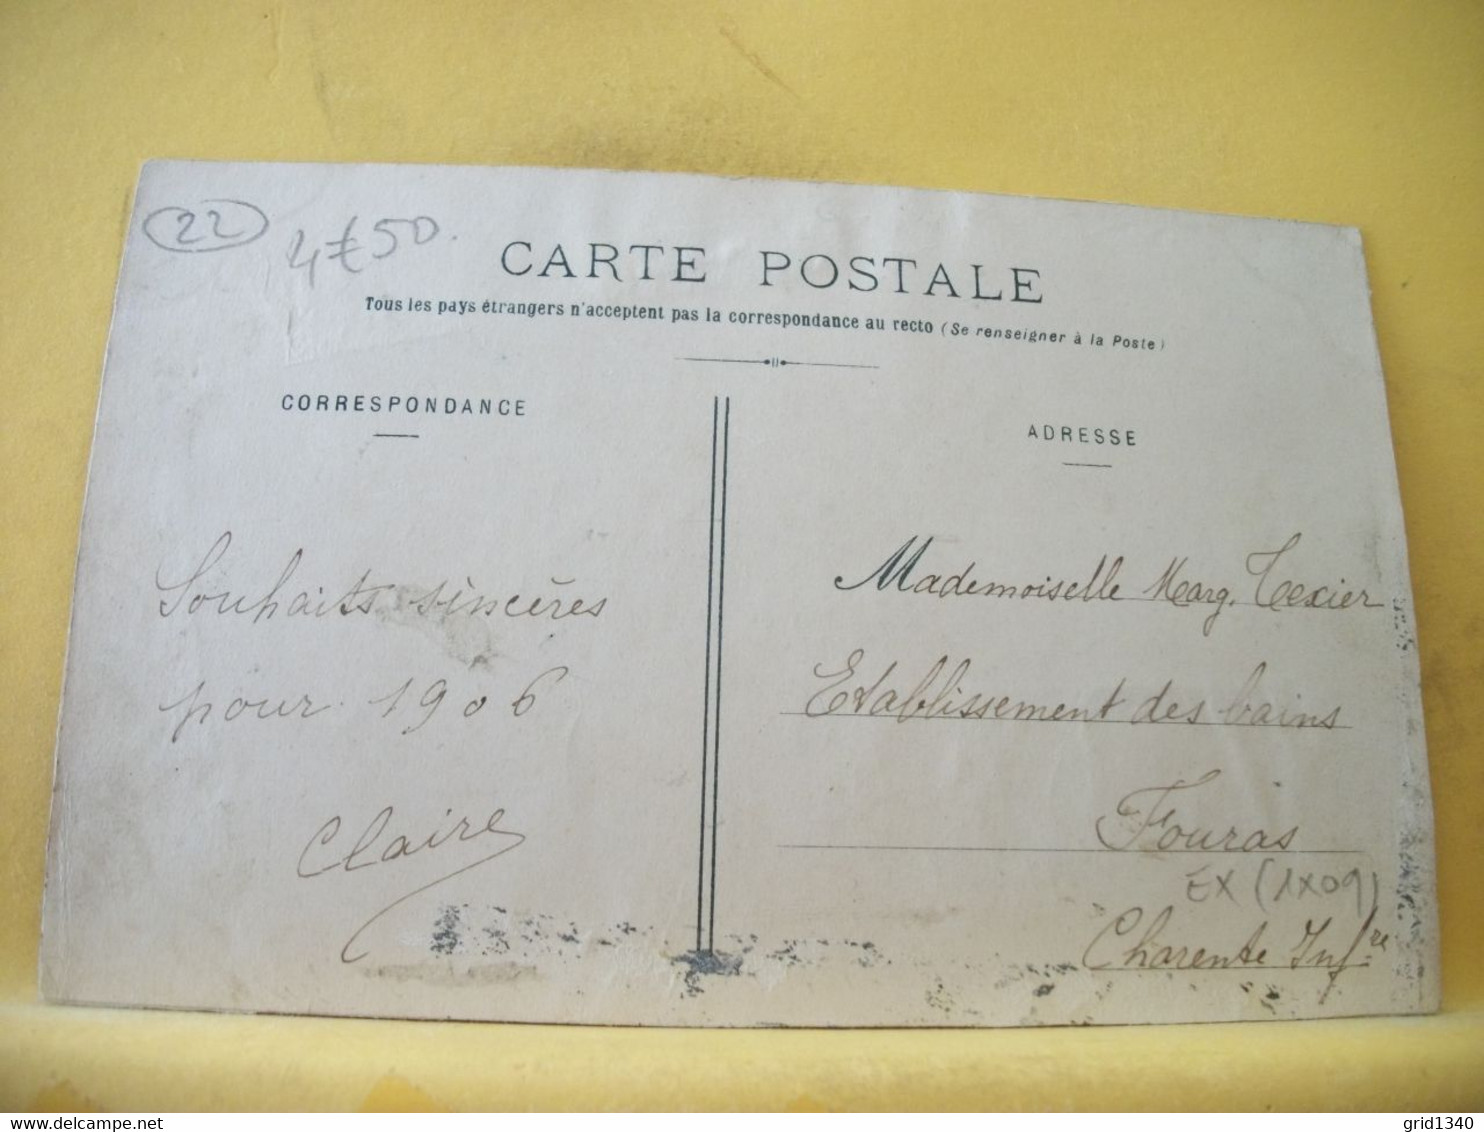 22
4€50
CARTE POSTALE
Tous les pays étrangers n'acceptent pas la correspondance au recto (Se renseigner à la Poste)
CORRESPONDANCE
Souhaits sincères
pour 1906
Claire
ADRESSE
Mademoiselle Marg. Texier
Etablissement des bains
Fouras
EX (1X09)
Charente Inf.re
grid1340